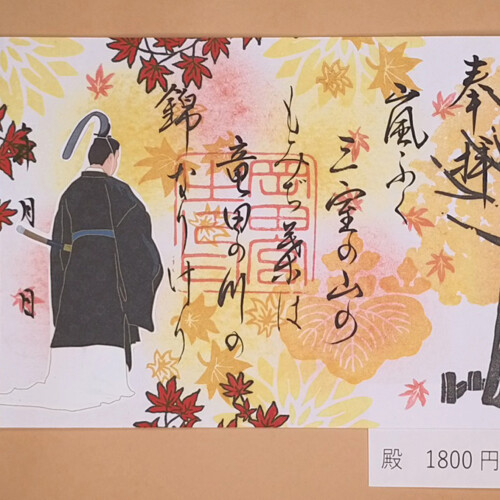 奉拝
嵐ふく
三室の山の
もみぢ葉は
竜田の川の
錦なりけり
月 日
殿 1800円